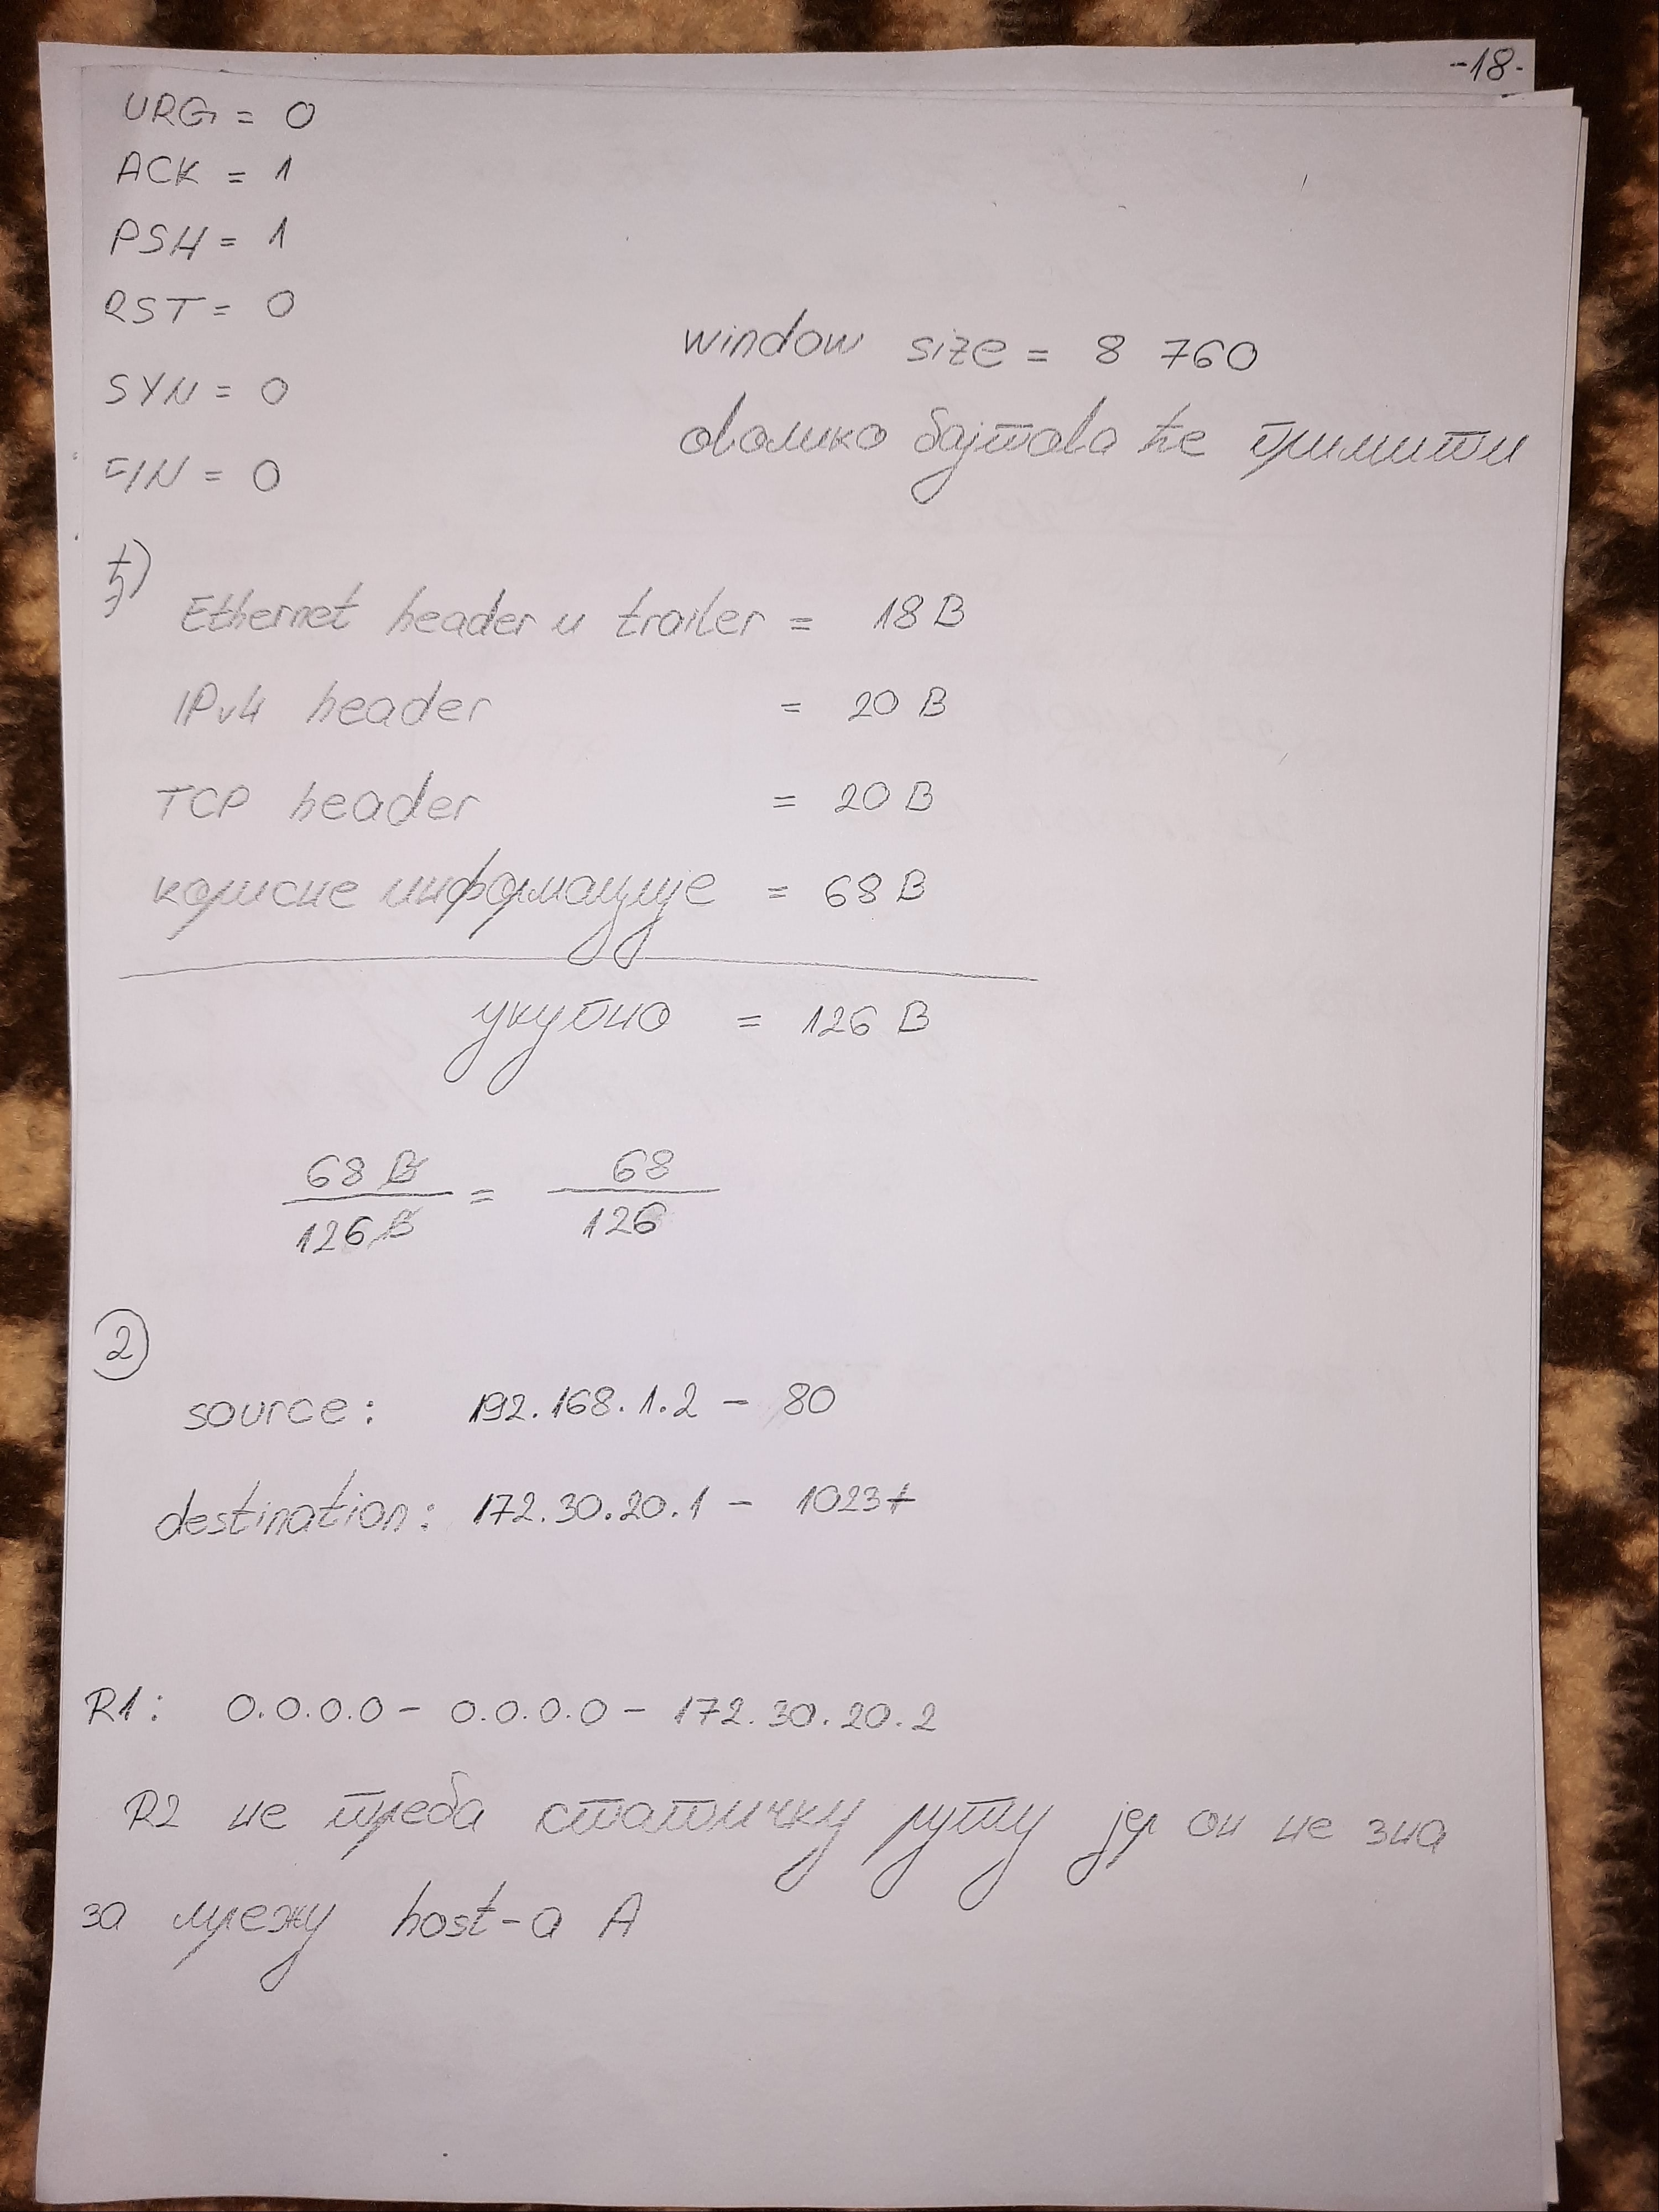 -18-
URG = 0
ACK = 1
PSH = 1
RST = 0
window size = 8 760
SYN = 0
оволико бајтова ће примити
FIN = 0
ђ)
Ethernet header и trailer = 18 B
IPv4 header = 20 B
TCP header = 20 B
корисне информације = 68 B
укупно = 126 B
68 B / 126 B = 68 / 126
2
source: 192.168.1.2 - 80
destination: 172.30.20.1 - 1023+
R1: 0.0.0.0 - 0.0.0.0 - 172.30.20.2
R2 не треба статичку руту јер он не зна
за мрежу host-a A